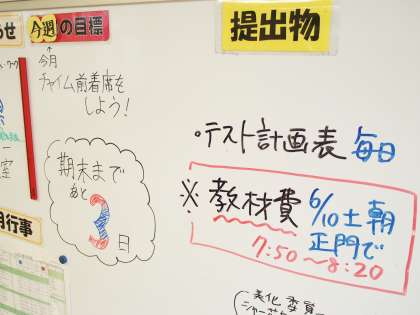 らせ
今週の目標
↑
今月
チャイム前着席を
しよう!
期末まで
あと
3
日
月行事
提出物
・テスト計画表 毎日
※教材費 6/10土 朝
正門で
7:50〜8:20
美化委員